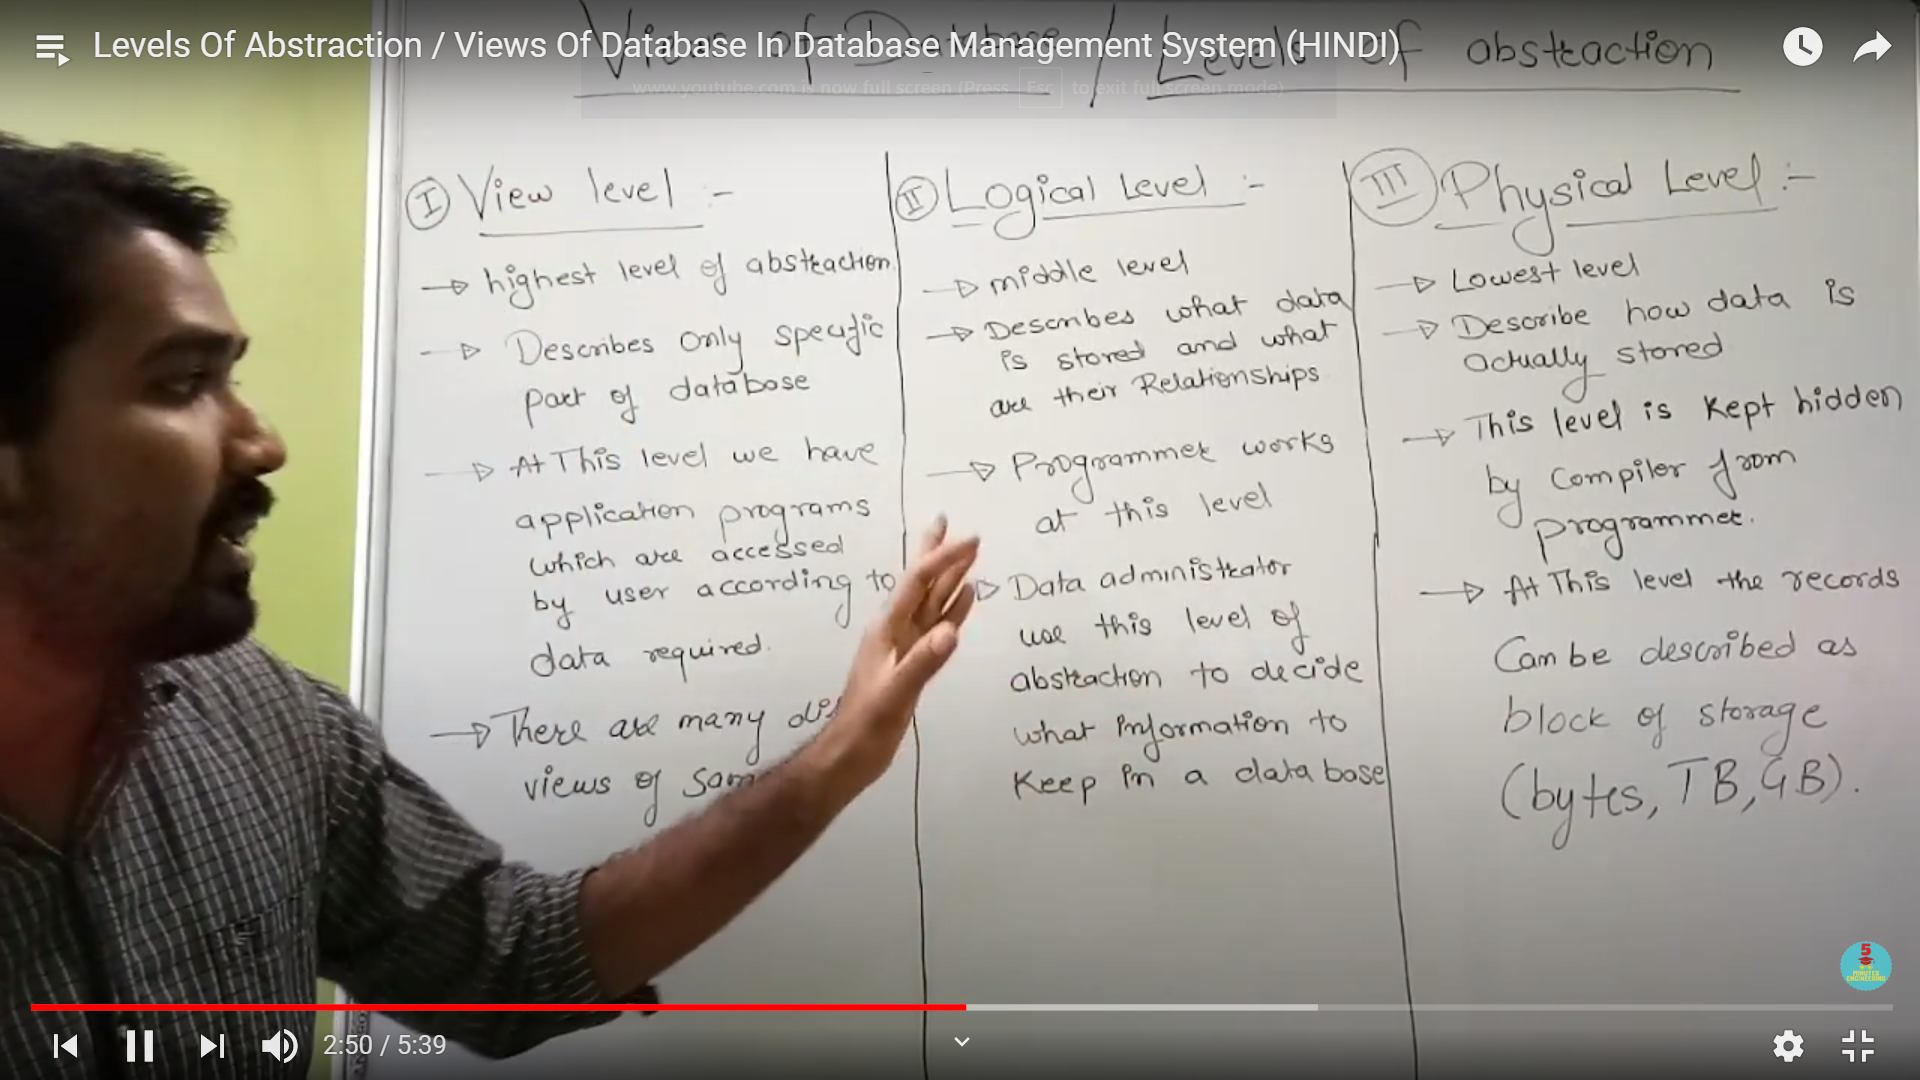 Levels Of Abstraction / Views Of Database In Database Management System (HINDI)
Views of Database / Levels of abstraction
www.youtube.com is now full screen (Press Esc to exit full screen mode)
I View level :-
→ highest level of abstraction
→ Describes Only specific
part of database
→ At This level we have
application programs
which are accessed
by user according to
data required.
→ There are many
views of
II Logical Level :-
→ middle level
→ Describes what data
is stored and what
are their Relationships
→ Programmer works
at this level
→ Data administrator
use this level of
abstraction to decide
what Information to
Keep in a database
III Physical Level :-
→ Lowest level
→ Describe how data is
actually stored
→ This level is Kept hidden
by Compiler from
programmer.
→ At This level the records
Can be described as
block of storage
(bytes, TB, GB).
5
MINUTES
ENGINEERING
2:50 / 5:39